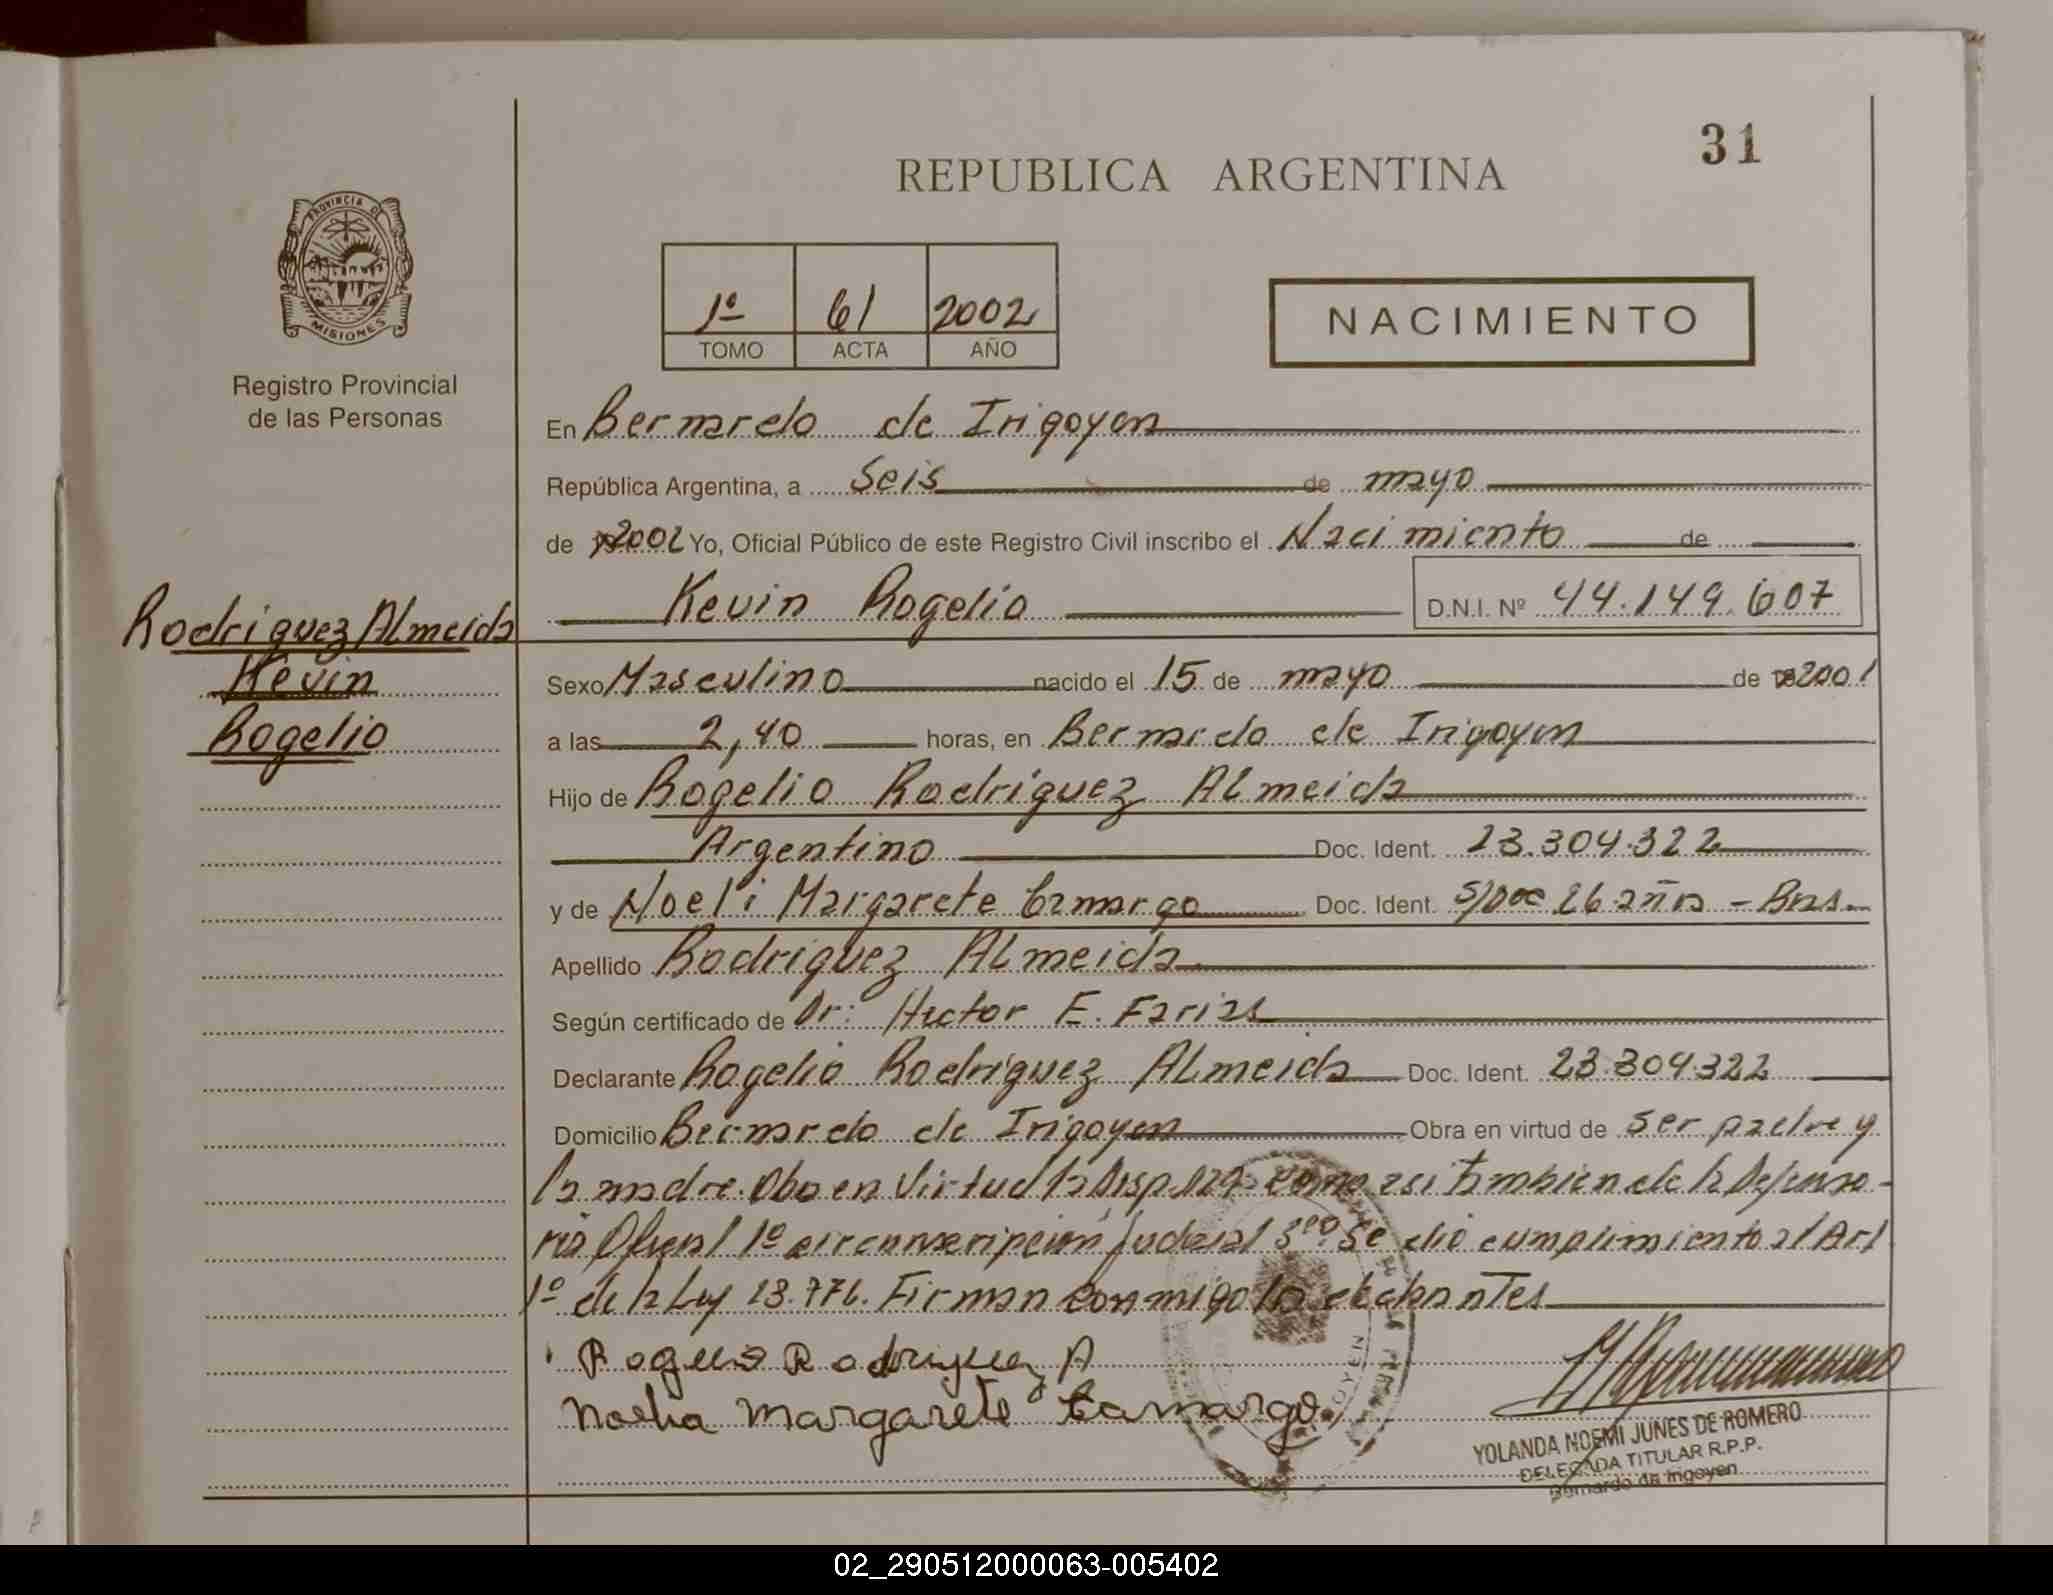 31
REPUBLICA ARGENTINA
PROVINCIA DE
MISIONES
Registro Provincial
de las Personas
1º 61 2002
TOMO ACTA AÑO
NACIMIENTO
En Bernardo de Irigoyen
República Argentina, a Seis de mayo
de 2002 Yo, Oficial Público de este Registro Civil inscribo el Nacimiento de
Kevin Rogelio D.N.I. Nº 44.149.607
Rodriguez Almeida
Kevin
Rogelio
Sexo Masculino nacido el 15 de mayo de 2001
a las 2,40 horas, en Bernardo de Irigoyen
Hijo de Rogelio Rodriguez Almeida
Argentino Doc. Ident. 23.304.322
y de Noeli Margarete Camargo Doc. Ident. S/Doc 26 años - Bras.
Apellido Rodriguez Almeida
Según certificado de Dr: Hector E. Farias
Declarante Rogelio Rodriguez Almeida Doc. Ident. 23.304.322
Domicilio Bernardo de Irigoyen Obra en virtud de ser padre y
la madre. en Virtud la Disp. como asi tambien de la Defenso-
ria Oficial 1º circunscripción Judicial Se dio cumplimiento al Art
1º de la Ley 13.776. Firman conmigo los
Rogelio Rodriguez A
Margarete Camargo
YOLANDA NOEMI JUNES DE ROMERO
DELEGADA TITULAR R.P.P.
Bernardo de Irigoyen
02_290512000063-005402